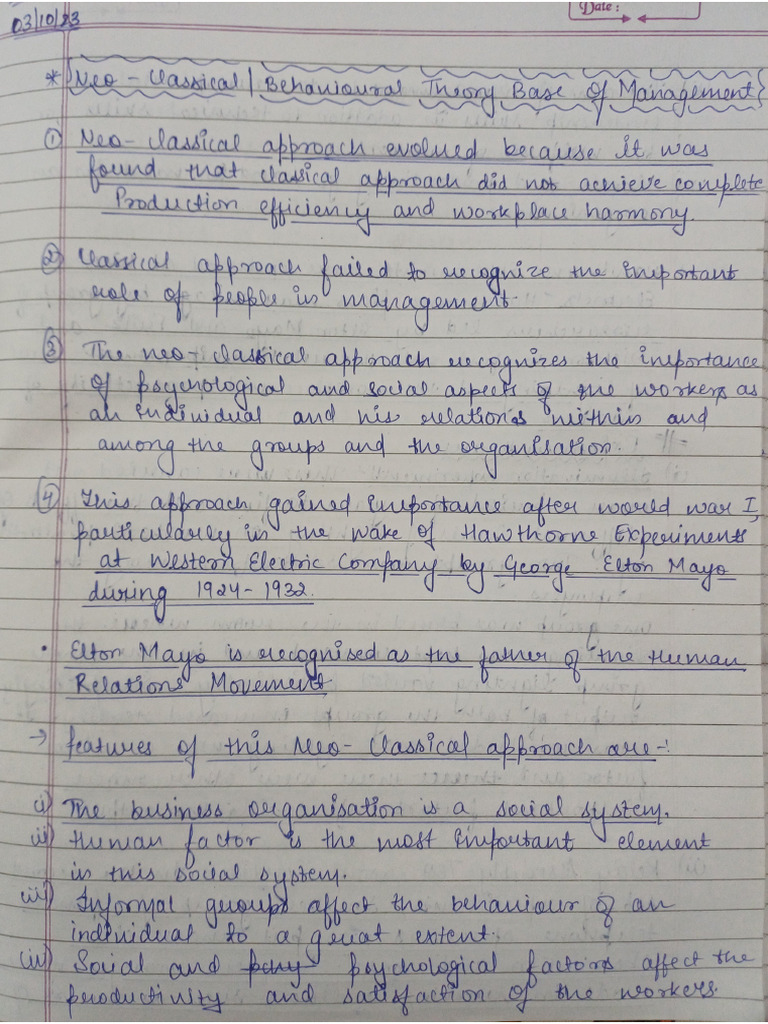 Date :
03/10/23
* Neo-Classical / Behavioural Theory Base of Management
① Neo-classical approach evolved because it was
found that classical approach did not achieve complete
Production efficiency and workplace harmony.
② Classical approach failed to recognize the important
role of people in management.
③ The neo-classical approach recognizes the importance
of psychological and social aspects of the workers as
an individual and his relations within and
among the groups and the organisation.
④ This approach gained importance after world war I,
particularly in the wake of Hawthorne Experiments
at Western Electric Company by George Elton Mayo
during 1924-1932.
• Elton Mayo is recognised as the father of the Human
Relations Movement
→ features of this Neo-Classical approach are -:
i) The business organisation is a social system.
ii) Human factor is the most important element
in this social system.
iii) Informal groups affect the behaviour of an
individual to a great extent.
iv) Social and psychological factors affect the
productivity and satisfaction of the workers.